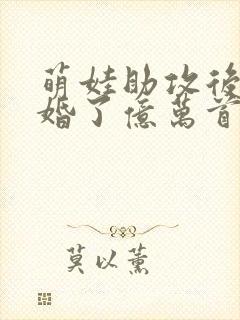 萌娃助攻後
婚了億萬首
莫以薰